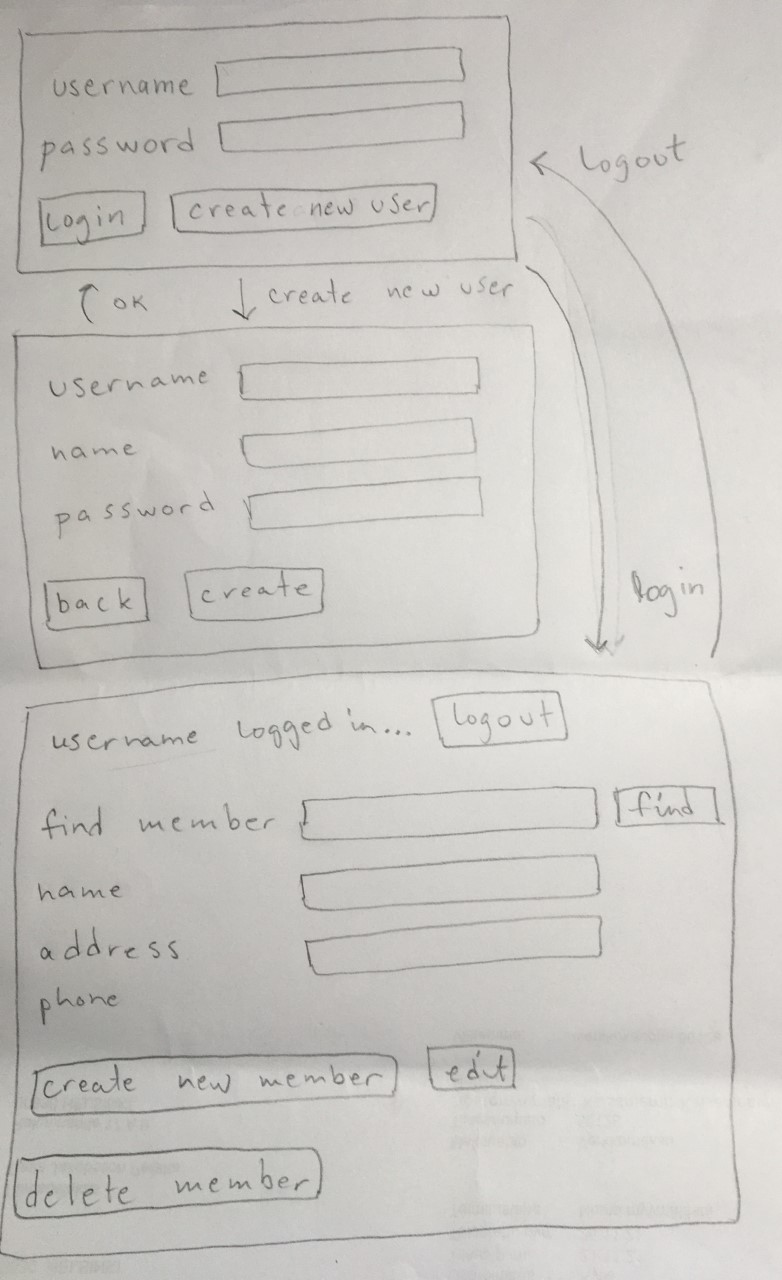 username
password
Login create new user
Logout
OK create new user
username
name
password
back create
login
username logged in... logout
find member find
name
address
phone
create new member edit
delete member